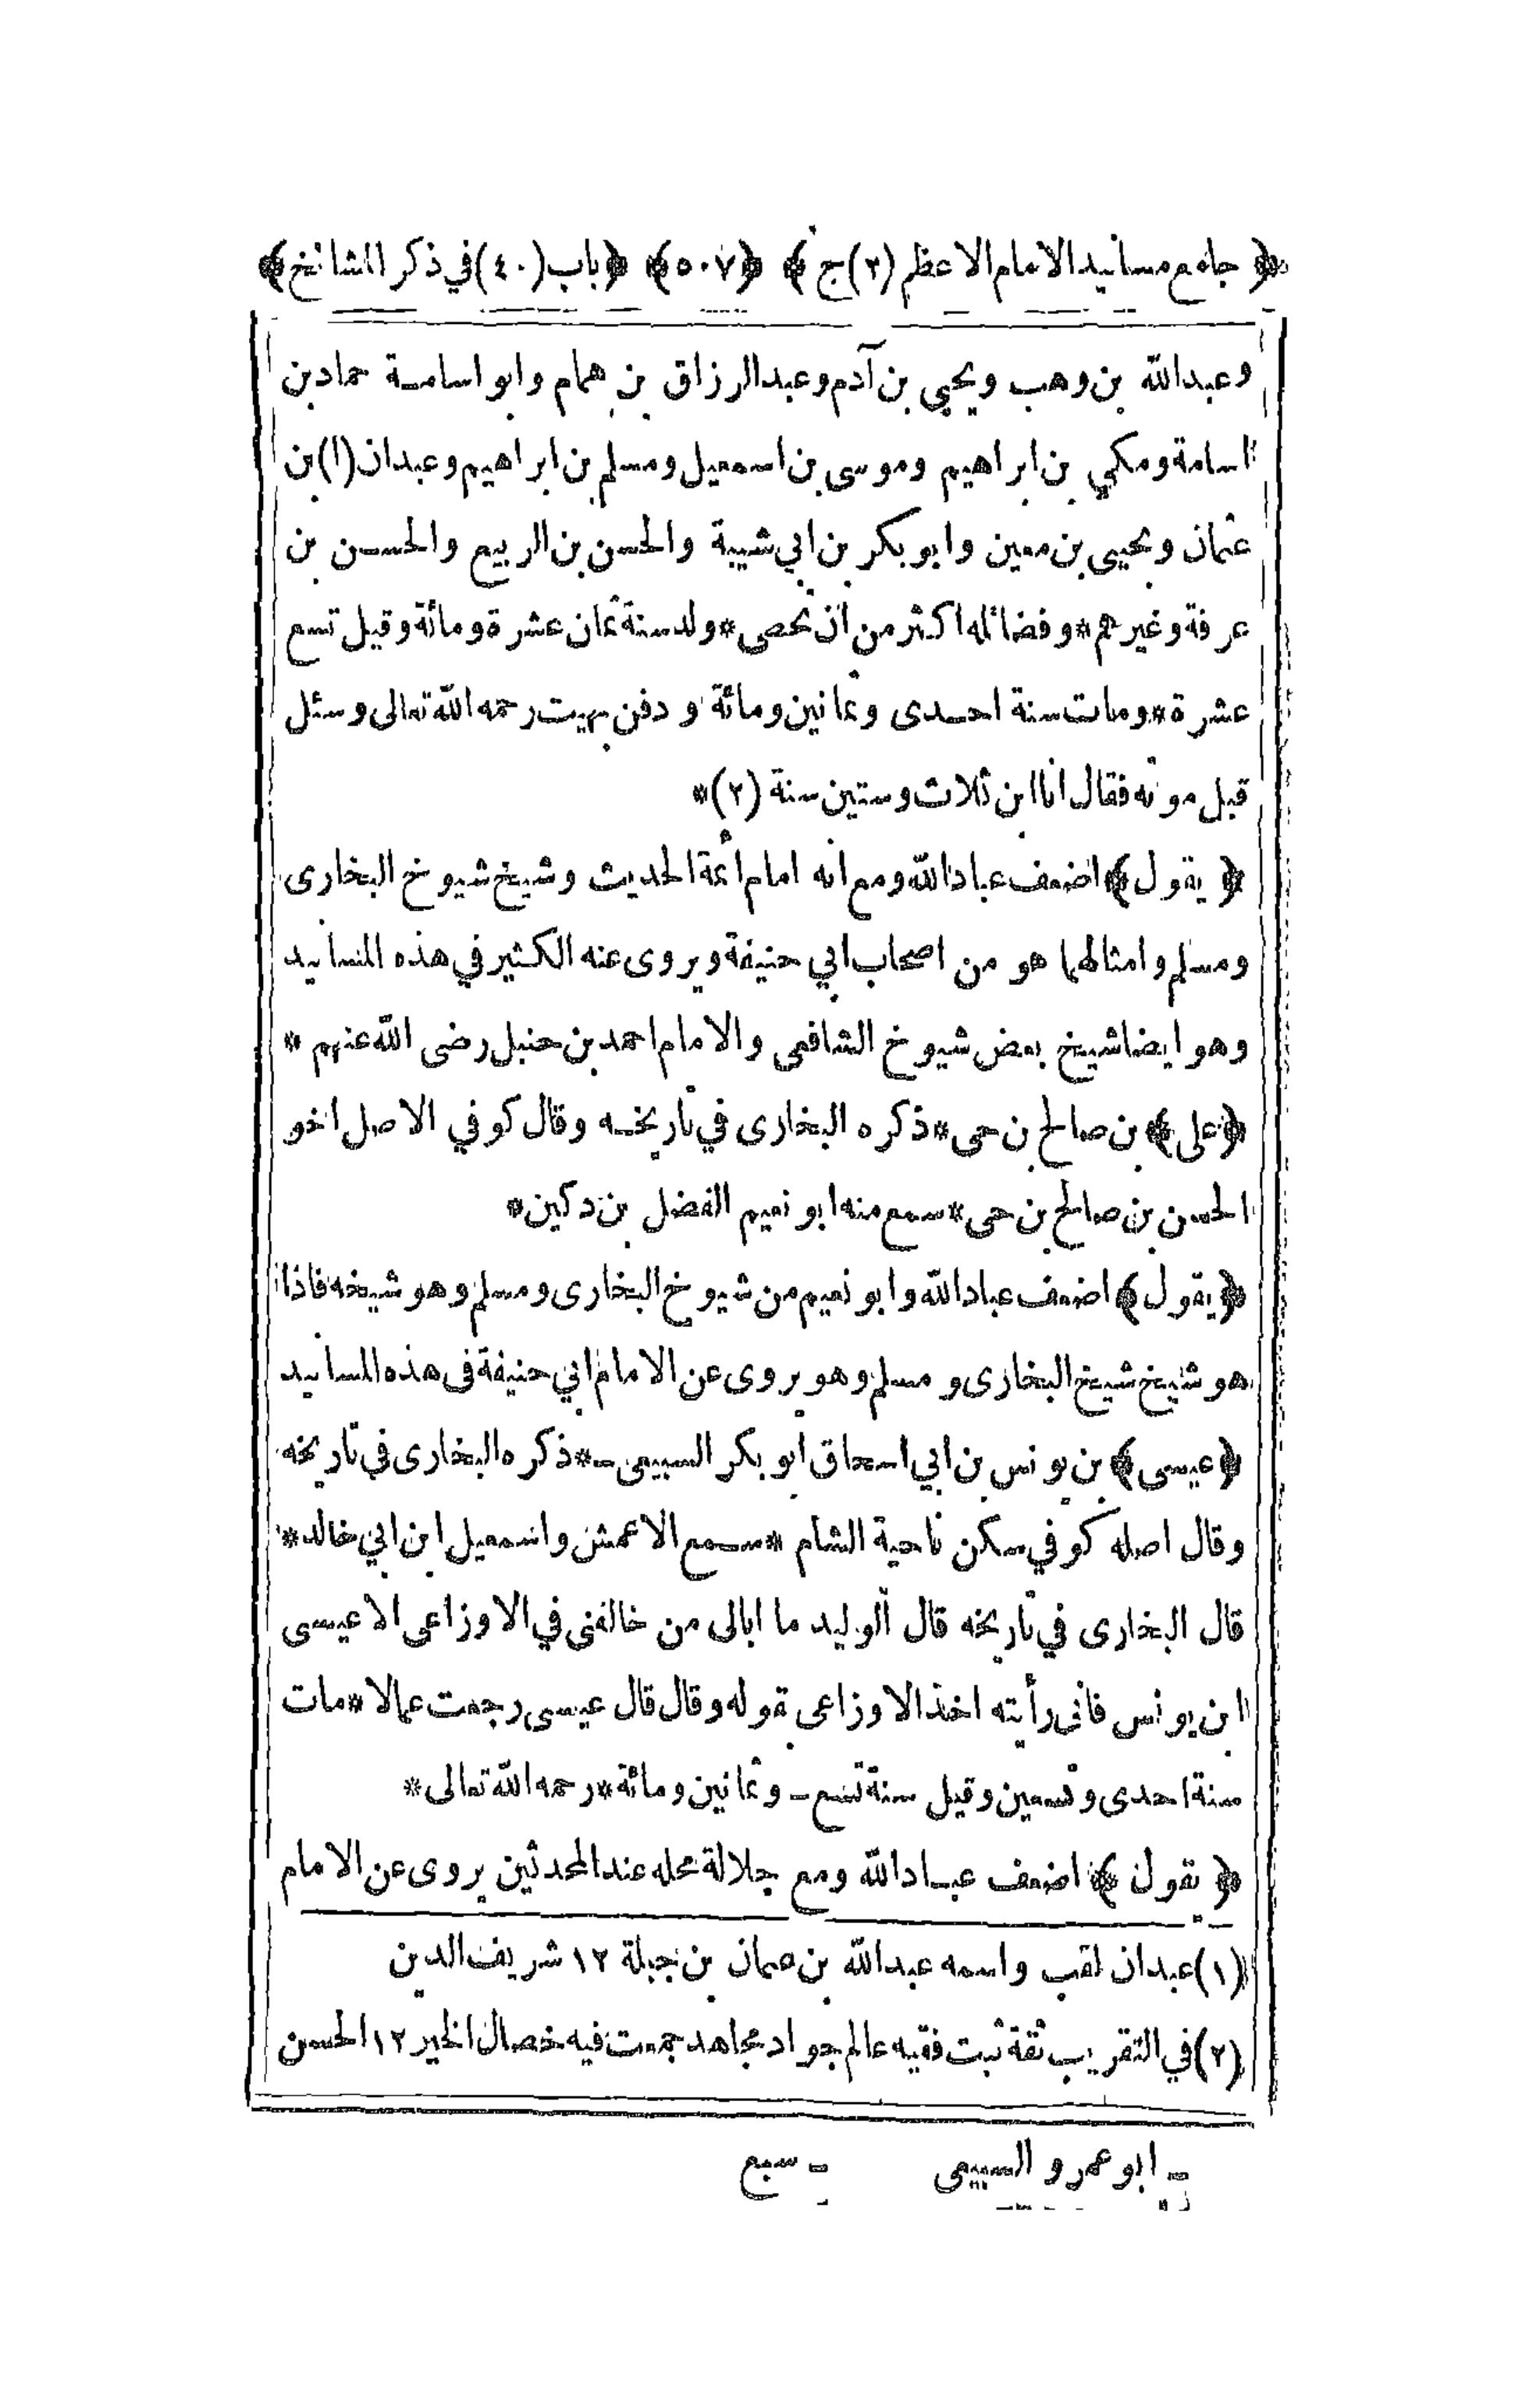 ﴿ جامع مسانيد الامام الاعظم (٢) ج ﴾ ﴿ ٥٠٧ ﴾ ﴿ باب (٤٠) في ذكر المشائخ ﴾
وعبدالله بن وهب ويحيى بن آدم وعبدالرزاق بن همام وابو اسامة حماد بن
اسامة ومكي بن ابراهيم وموسى بن اسمعيل ومسلم بن ابراهيم وعبدان (١) بن
عثمان ويحيى بن معين وابو بكر بن ابي شيبة والحسن بن الربيع والحسن بن
عرفة وغيرهم * وفضائله اكثر من ان تحصى * ولد سنة ثمان عشرة ومائة وقيل تسع
عشرة * ومات سنة احدى وثمانين ومائة و دفن بهيت رحمه الله تعالى وسئل
قبل موته فقال انا ابن ثلاث وستين سنة (٢) *
﴿ يقول ﴾ اضعف عباد الله ومع انه امام أئمة الحديث وشيخ شيوخ البخارى
ومسلم وامثالهما هو من اصحاب ابي حنيفة ويروى عنه الكثير في هذه المسانيد
وهو ايضا شيخ بعض شيوخ الشافعى والامام احمد بن حنبل رضى الله عنهم *
﴿ على ﴾ بن صالح بن حى * ذكره البخارى في تاريخه وقال كوفي الاصل اخو
الحسن بن صالح بن حى * سمع منه ابو نعيم الفضل بن دكين *
﴿ يقول ﴾ اضعف عباد الله وابو نعيم من شيوخ البخارى ومسلم وهو شيخه فاذا
هو شيخ شيخ البخارى و مسلم وهو يروى عن الامام ابي حنيفة فى هذه المسانيد
﴿ عيسى ﴾ بن يونس بن ابي اسحاق ابو بكر السبيعى ـ * ذكره البخارى في تاريخه
وقال اصله كوفي سكن ناحية الشام * سمع الاعمش واسمعيل ابن ابي خالد *
قال البخارى في تاريخه قال الوليد ما ابالى من خالفنى في الاوزاعى الا عيسى
ابن يونس فانى رأيته اخذ الاوزاعى بقوله وقال قال عيسى رجعت عمالا * مات
سنة احدى وتسعين وقيل سنة تسع ـ وثمانين ومائة * رحمه الله تعالى *
﴿ يقول ﴾ اضعف عباد الله ومع جلالة محله عند المحدثين يروى عن الامام
(١) عبدان لقب واسمه عبدالله بن عثمان بن جبلة ١٢ شريف الدين
(٢) في التقريب ثقة ثبت فقيه عالم جواد مجاهد جمعت فيه خصال الخير ١٢ الحسن
ـ ابو عمرو السبيعى ـ سبع